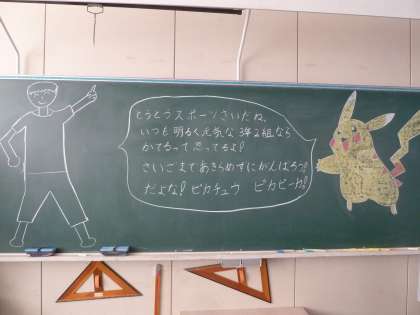 とうとうスポーツさいだね。
いつも明るく元気な3年2組なら
かてるって思ってるよ!
さいごまであきらめずにがんばろう!
だよな!ピカチュウ ピカピーカ!